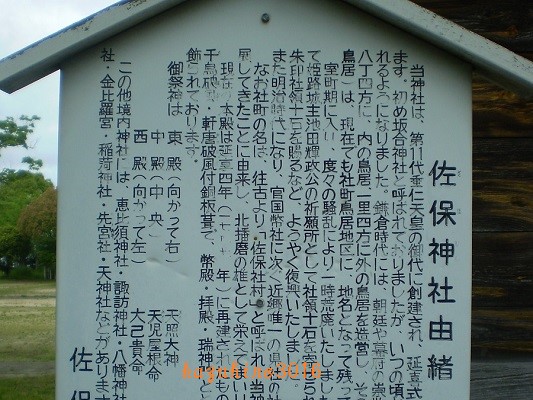 佐保神社由緒
当神社は、第11代垂仁天皇の御代に創建され、延喜式
ます。初め坂合神社と呼ばれておりましたが、いつの頃
れるようになりました。鎌倉時代には、朝廷や幕府の崇
八丁四方に、内の鳥居二里四方に外の鳥居を造営し、そ
鳥居）は、現在でも社町鳥居地区に、地名となって残って
室町期に入り、度々の騒乱により一時荒廃いたしました
て姫路城主池田輝政公の祈願所として社領十石を寄せられ
朱印社領十石を賜るなど、ようやく復興いたしま
また明治時代になり、官国幣社に次ぐ近郷唯一の県
なお社町の名は、往古より「佐保社村」と呼ばれ、当神
展してきたことに由来し、北播磨の雄として栄えてまいり
現在、本殿は延享四年（一七 年）に再建されもの
千鳥破 軒唐破風付銅板葺で、幣殿・拝殿・瑞神
飾 れております。
御祭神は 東殿（向かって右） 天照大神
中殿（中央） 天児屋根命
西殿（向かって左） 大己貴命
この他境内神社には、恵比須神社・諏訪神社・八幡神社
社・金比羅宮・稲荷神社・先宮社・天神社などがあります
佐保
kagahina3016